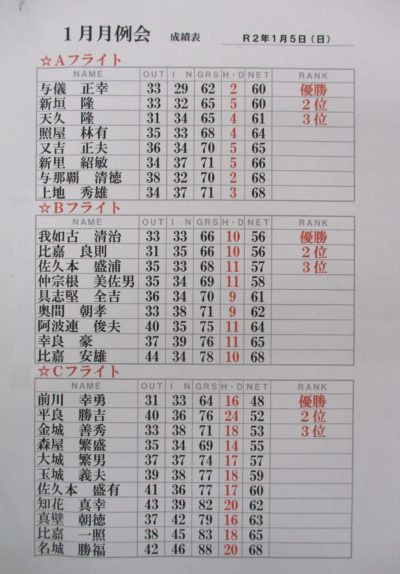 1月月例会 成績表 R2年1月5日(日)
☆Aフライト
NAME OUT I N GRS H・D NET RANK
与儀 正幸 33 29 62 2 60 優勝
新垣 隆 33 32 65 5 60 2位
天久 隆 31 34 65 4 61 3位
照屋 林有 35 33 68 4 64
又吉 正夫 36 34 70 5 65
新里 紹敏 34 37 71 5 66
与那覇 清徳 38 32 70 2 68
上地 秀雄 34 37 71 3 68
☆Bフライト
NAME OUT I N GRS H・D NET RANK
我如古 清治 33 33 66 10 56 優勝
比嘉 良則 31 35 66 10 56 2位
佐久本 盛浦 35 33 68 11 57 3位
仲宗根 美佐男 35 34 69 11 58
具志堅 全吉 36 34 70 9 61
奥間 朝孝 33 38 71 9 62
阿波連 俊夫 40 35 75 11 64
幸良 豪 37 39 76 11 65
比嘉 安雄 44 34 78 10 68
☆Cフライト
NAME OUT I N GRS H・D NET RANK
前川 幸勇 31 33 64 16 48 優勝
平良 勝吉 40 36 76 24 52 2位
金城 善秀 33 38 71 18 53 3位
森屋 繁盛 35 34 69 14 55
大城 繁男 37 37 74 17 57
玉城 義夫 39 38 77 18 59
佐久本 盛有 41 36 77 17 60
知花 真幸 43 39 82 20 62
真壁 朝徳 37 42 79 16 63
比嘉 一照 38 45 83 18 65
名城 勝福 42 46 88 20 68